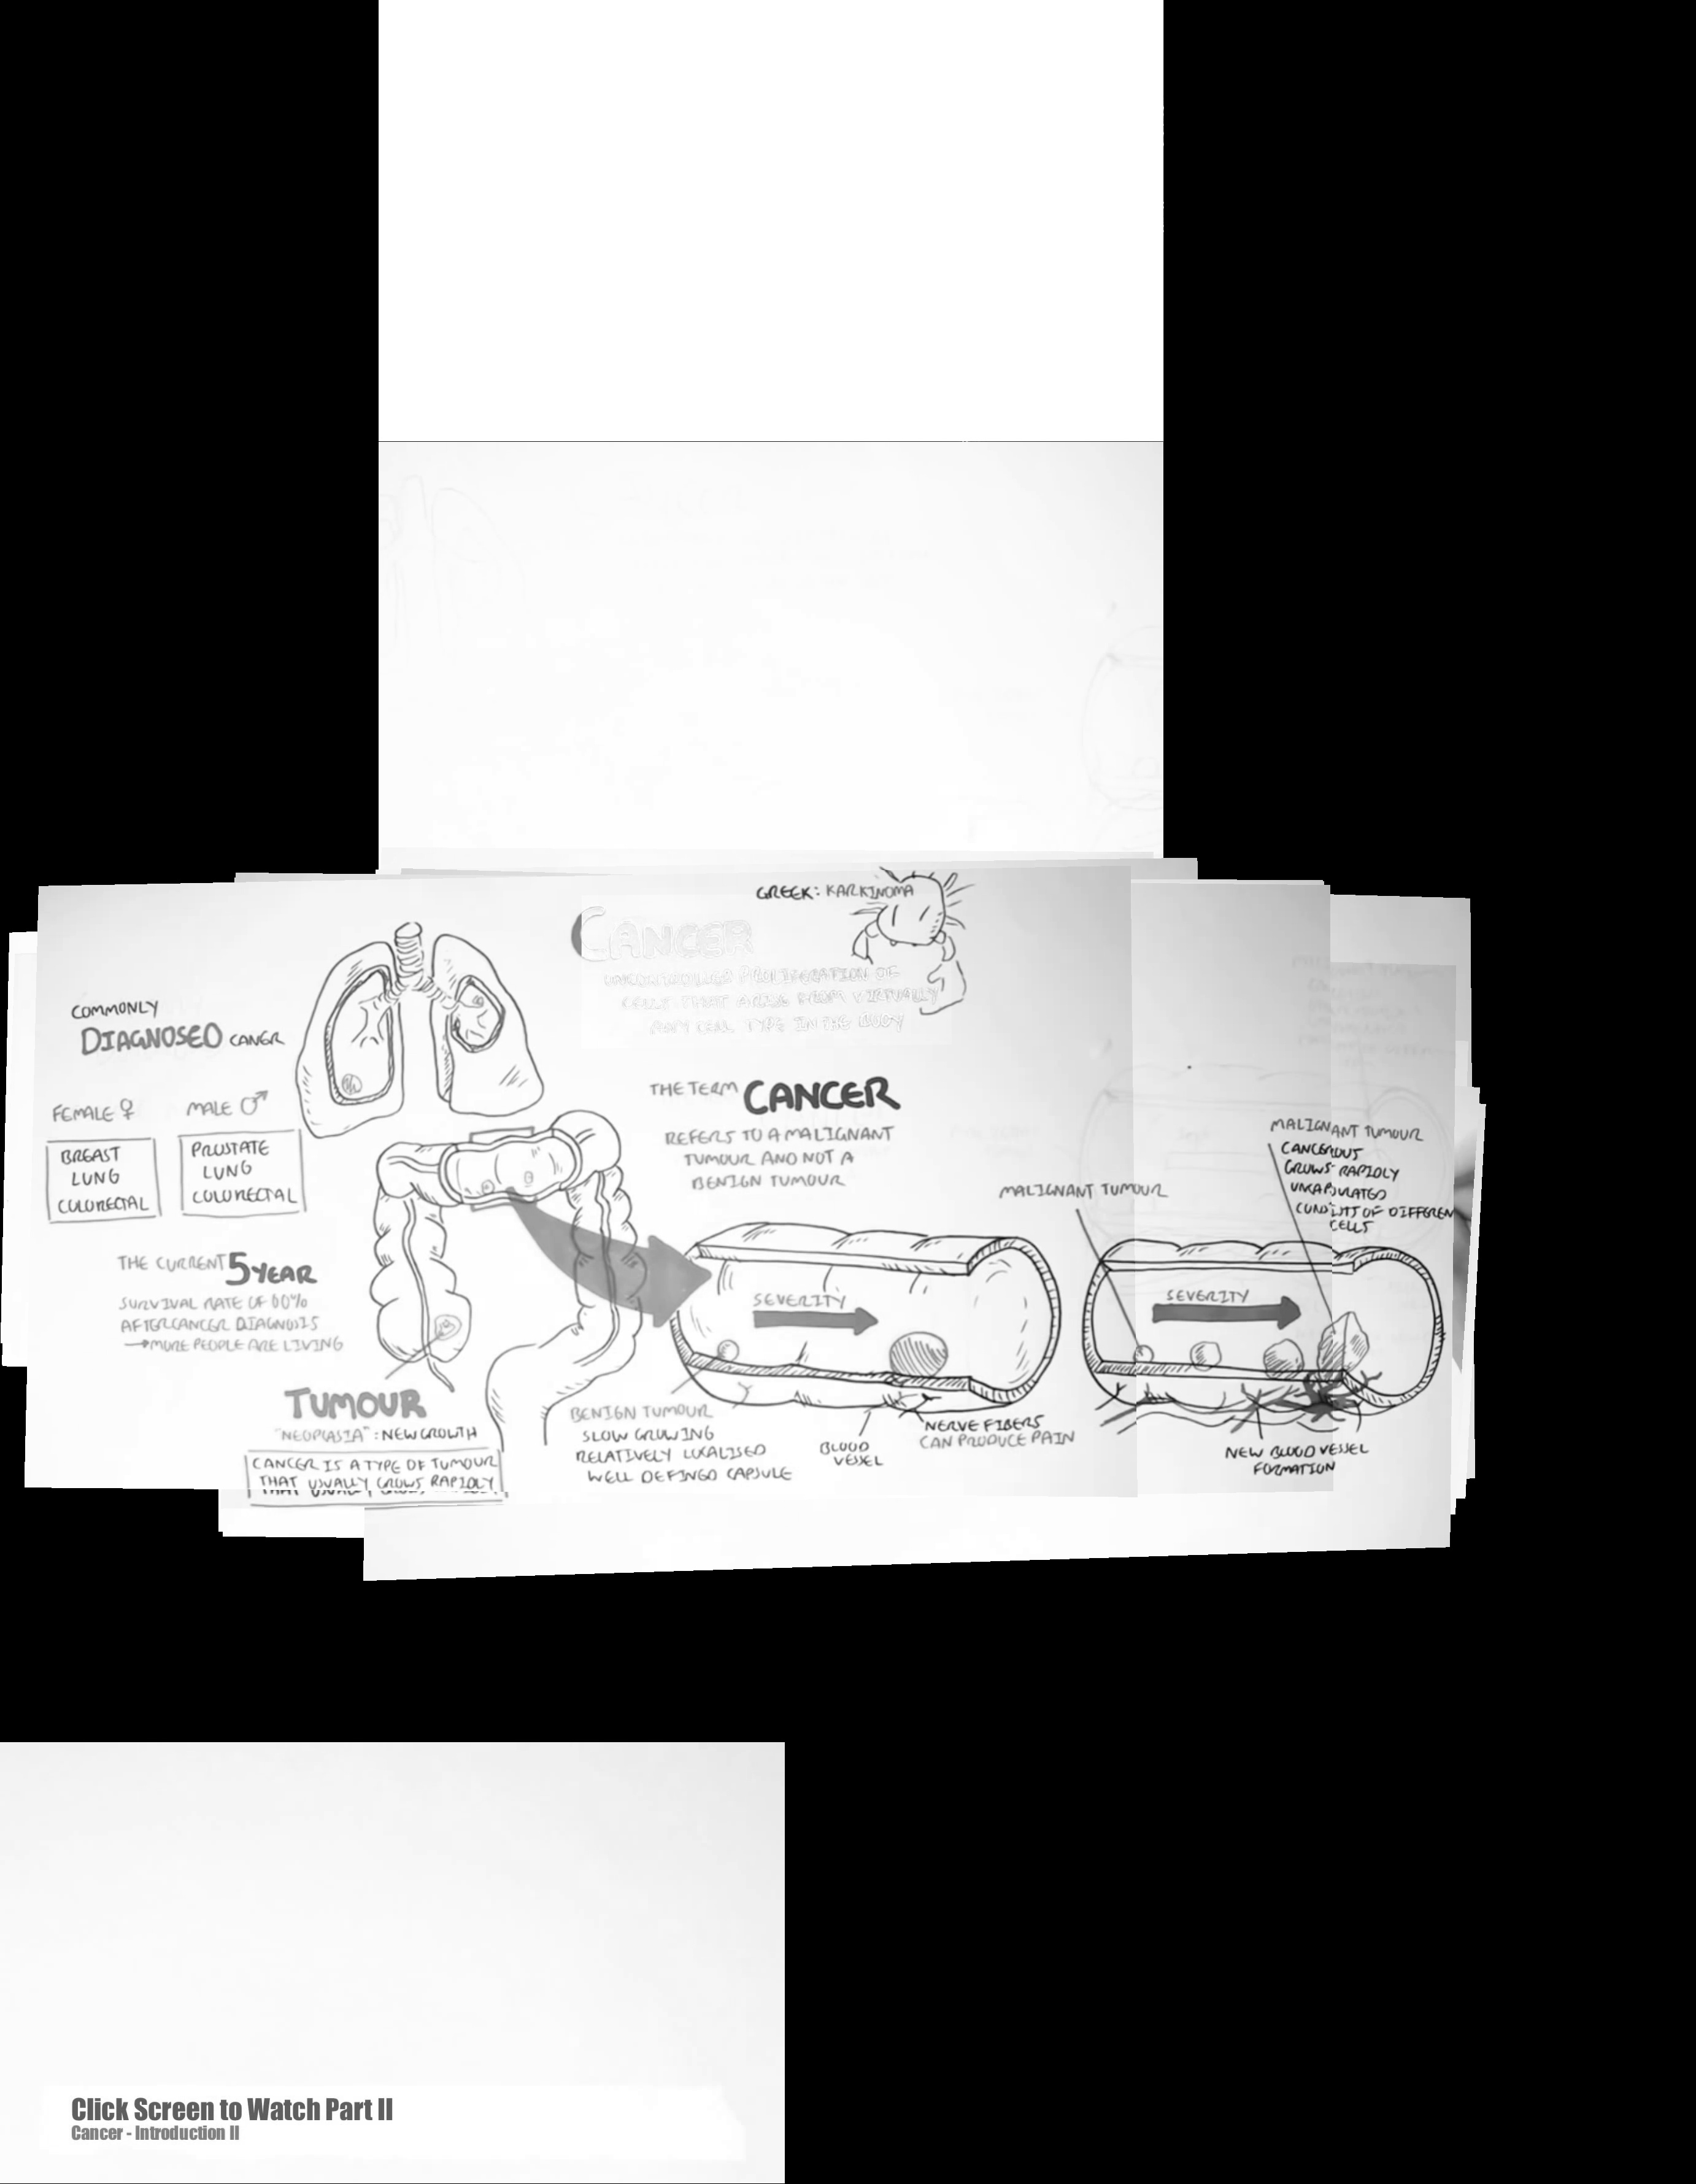 GREEK: KARKINOMA
CANCER
PROLIFERATION OF
CELLS THAT ARISE FROM VIRTUALLY
ANY CELL TYPE IN THE BODY
COMMONLY
DIAGNOSED CANER
FEMALE ♀
MALE ♂
BREAST
LUNG
COLORECTAL
PROSTATE
LUNG
COLORECTAL
THE CURRENT 5 YEAR
SURVIVAL RATE OF 60%
AFTER CANCER DIAGNOSIS
→ MORE PEOPLE ARE LIVING
TUMOUR
"NEOPLASIA" : NEW GROWTH
CANCER IS A TYPE OF TUMOUR
THAT USUALLY GROWS RAPIDLY
THE TERM CANCER
REFERS TO A MALIGNANT
TUMOUR AND NOT A
BENIGN TUMOUR
SEVERITY
BENIGN TUMOUR
SLOW GROWING
RELATIVELY LOCALISED
WELL DEFINED CAPSULE
BLOOD
VESSEL
NERVE FIBERS
CAN PRODUCE PAIN
MALIGNANT TUMOUR
MALIGNANT TUMOUR
CANCEROUS
GROWS RAPIDLY
CONSISTS OF DIFFEREN
CELLS
SEVERITY
NEW BLOOD VESSEL
FORMATION
Click Screen to Watch Part II
Cancer - Introduction II